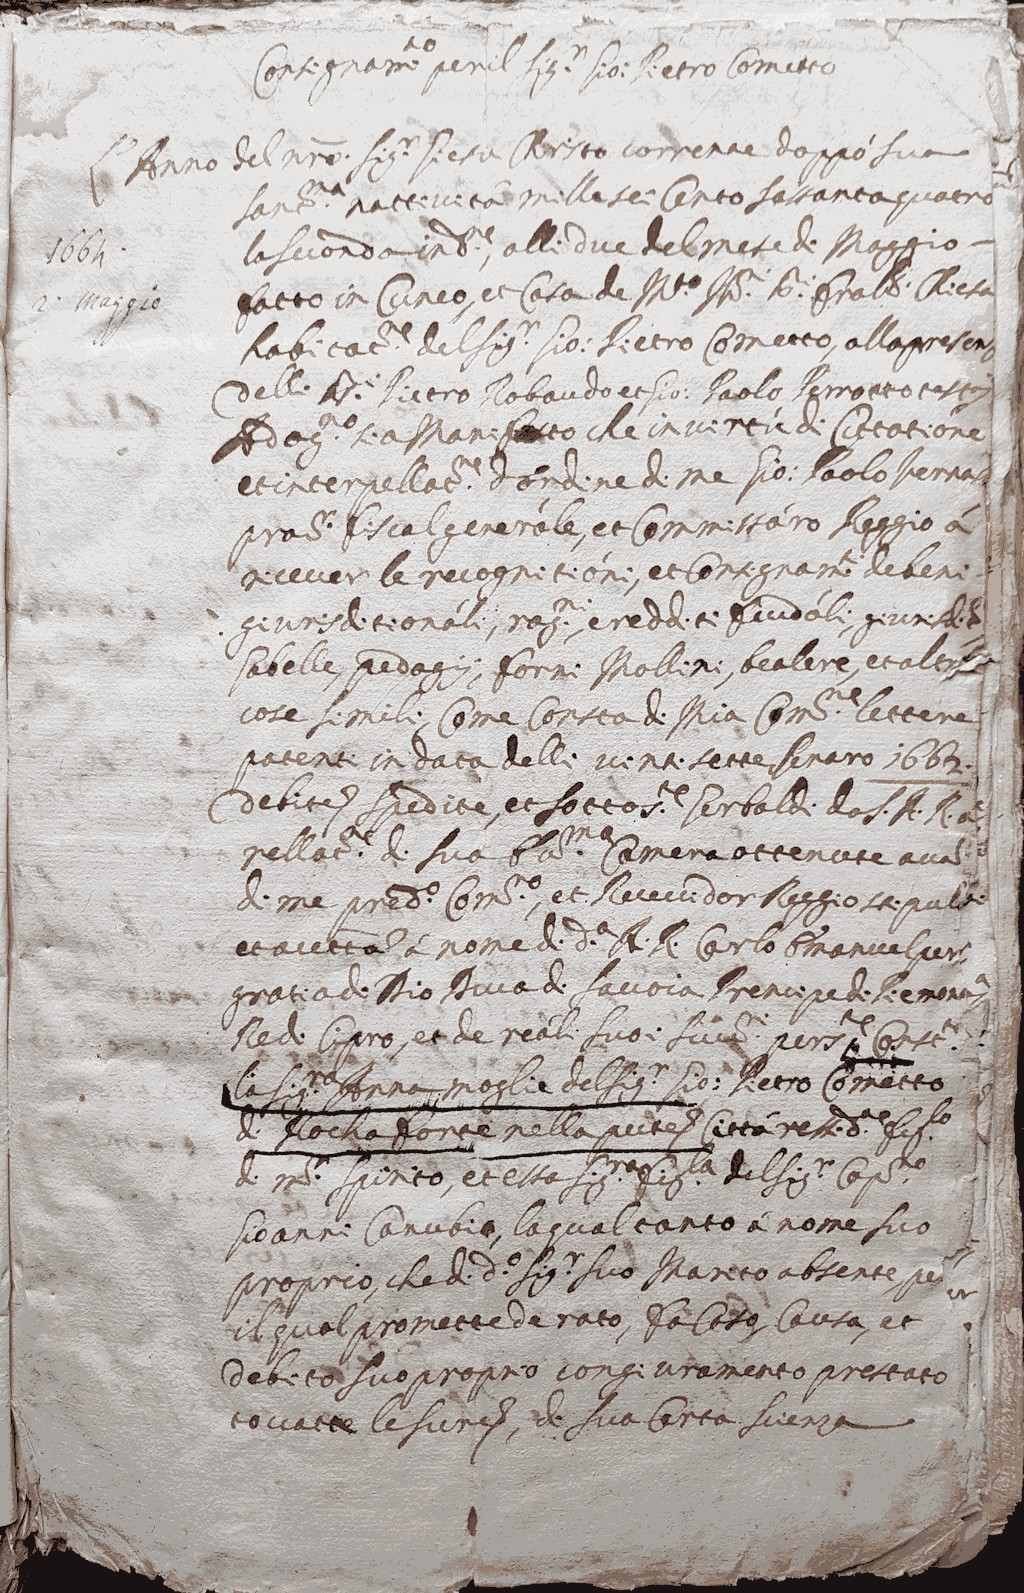 Consegnam.to per il Sig.r Gio: Pietro Cometto
L'Anno del nro. Sig.r Giesu Christo corrente doppó sua
sant.ma nattività mille sei Cento sassanta quatro
1664.
la seconda ind.ne, alli due del mese di Maggio
2. Maggio
fatto in Cuneo, et Casa de Chiesa
habitat.ne del Sig.r Gio: Pietro Cometto, alla presenz
delli Pietro Robaudo et Gio: Paolo Perrotto testij
Ad ogn.o sia Manifesto che in vertù di Cittatióne
et interpellat.ne d'ordine di me Gio: Paolo
fiscal generále, et Commissáro Reggio á
ricever le recognitióni, et Consegnam.ti de beni
giurisditionáli, rag.ni, e redditi feudáli, giurisdi
Gabelle, pedagij, forni Mollini, bealere, et altre
cose simili, Come Consta di Mia Com.ne lettere
patenti in data delli vinti sette Genaro 1662.
debite spedite, et sottos.te Gerbaldi da S. A. R. á
rellat.ne di sua Camera ottenute
di me pred.o Com.ro, et Ricevidor Reggio stipul
á nome di d.a A. R. Carlo Emanuel per
gratia di Dio Duca di Savoia Prencipe di Piemonte
Re di Cipro, et de reáli suoi Const.
la Sig.ra Anna moglie del Sig.r Gio: Pietro Cometto
di Rocha forte nella Città
di m.r Spirito, et essa Sig.ra fig.la del Sig.r Cap.no
Gioanni Canubio, la qual tanto á nome suo
proprio, che di d.o Sig.r suo Marito absente, per
il qual promette de rato, fa Caso, Causa, et
debito suo proprio con giuramento prestato
toccatte le di sua Certa scienza